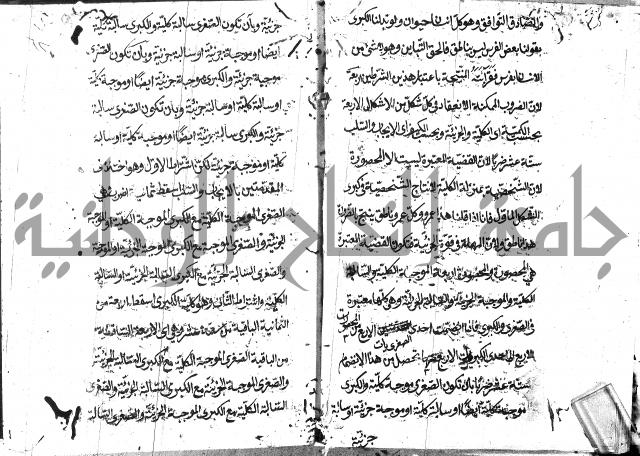 والصادق التوافق وهو كل انسان حيوان ولو بدلنا الكبرى
بقولنا بعض الفرس ليس بناطق فالحق التباين وهو لا شئ من
الانسان بفرس النتيجة باعتبار هذين الشرطين اربعة
لان الضروب الممكنة الانعقاد في كل شكل من الاشكال الاربعة
بحسب الكلية والجزئية وبحسب الايجاب والسلب
ستة عشر ضربا لان القضية المعتبرة ليست الا المحصورة
لان الشخصية بمنزلة الكلية لانتاج الشخصية في كبرى
الشكل الاول فانا اذا قلنا هذا عمرو وكل عمرو ناطق ينتج
هذا ناطق ولان المهملة في قوة الجزئية فتكون القضية المعتبرة
هي المحصورة والمحصورة اربعة الموجبة الكلية والسالبة
الكلية والموجبة الجزئية والسالبة الجزئية وهي كلها معتبرة
في الصغرى والكبرى فاذا انضمت احدى الصغريات الاربع
الى احدى الكبريات الاربع يحصل من هذا الانضمام
ستة عشر ضربا بان تكون الصغرى موجبة كلية والكبرى
موجبة كلية ايضا او سالبة كلية او موجبة جزئية او سالبة
جزئية
جزئية وبان تكون الصغرى سالبة كلية والكبرى سالبة كلية
ايضا او موجبة جزئية او سالبة جزئية وبان تكون الصغرى
موجبة جزئية والكبرى موجبة جزئية ايضا او موجبة كلية
او سالبة كلية او سالبة جزئية وبان تكون الصغرى سالبة
جزئية والكبرى سالبة جزئية ايضا او موجبة كلية او سالبة
كلية او موجبة جزئية لكن اشتراط الاول وهو اختلاف
المقدمتين بالايجاب والسلب اسقط ثمانية اضرب وهي
الصغرى الموجبة الكلية والكبرى الموجبة الكلية والموجبة
الجزئية والصغرى الموجبة الجزئية والكبرى الموجبة الجزئية والموجبة
والصغرى السالبة الجزئية مع الكبرى السالبة الجزئية والسالبة
الكلية واشتراط الثاني وهو كلية الكبرى اسقط اربعة من
الثمانية الباقية من ستة عشر وهي الاربعة الساقطة
من الباقية الصغرى الموجبة الكلية مع الكبرى السالبة الجزئية
والصغرى الموجبة الجزئية مع الكبرى السالبة الجزئية والصغرى
السالبة الكلية مع الكبرى الموجبة الجزئية والصغرى السالبة
جامعة النجاح الوطنية